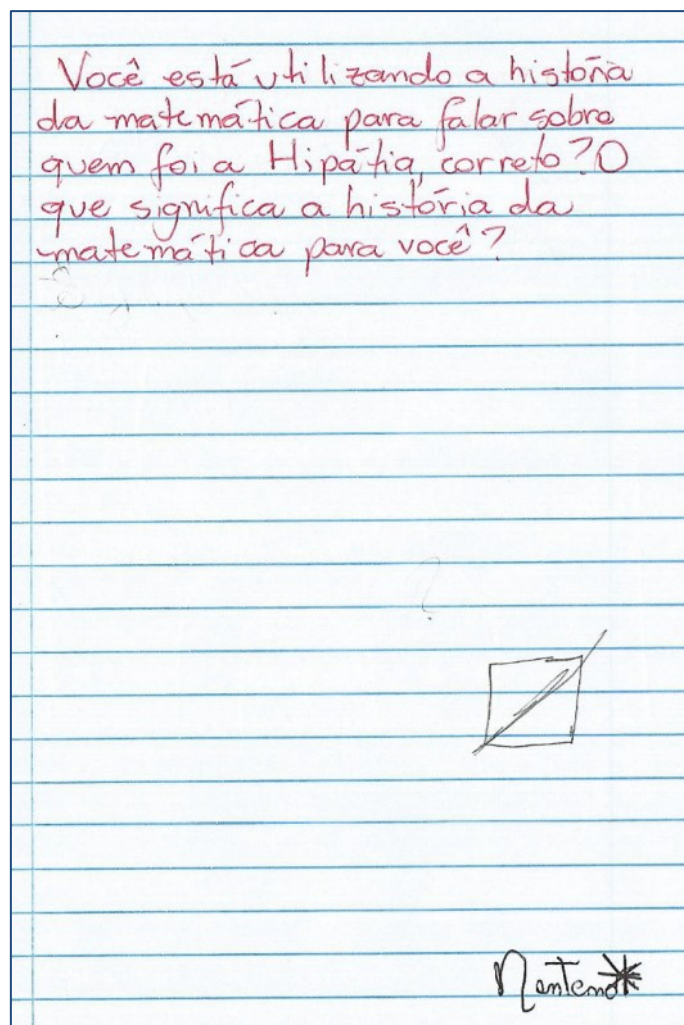 Você está utilizando a história
da matemática para falar sobre
quem foi a Hipátia, correto? O
que significa a história da
matemática para você?
?